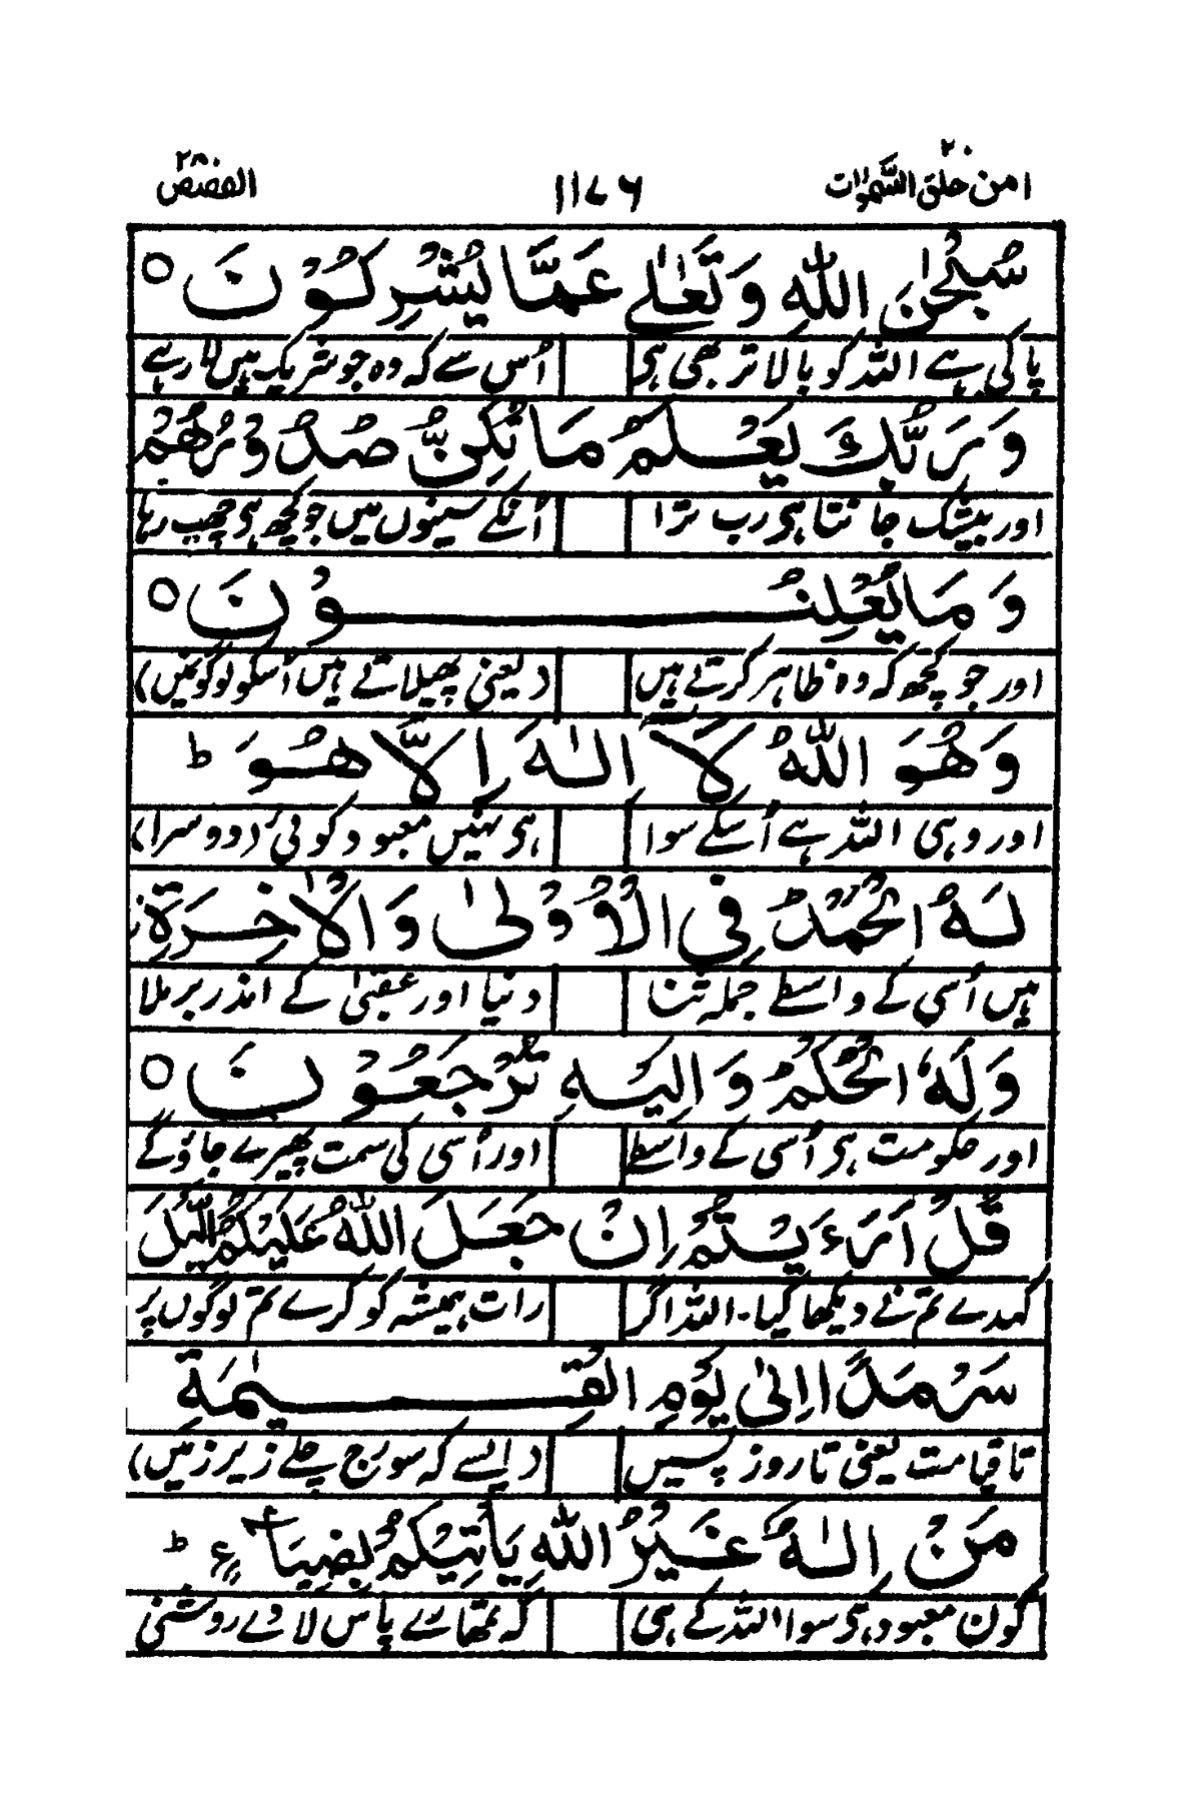 امن خلق السّمٰوٰت ۲۰ ۱۱۷۶ القصص ۲۸
سُبْحٰنَ اللّٰهِ وَ تَعٰلٰی عَمَّا یُشْرِكُوْنَ ○
پاکی ہے اللہ کو بالا تر بھی ہی اُس سے کہ وہ جو شریک ہیں لا رہے
وَ رَبُّكَ یَعْلَمُ مَا تُكِنُّ صُدُوْرُهُمْ
اور بیشک جانتا ہی رب ترا اُنکے سینوں میں جو کچھ ہی چھپ رہا
وَ مَا یُعْلِنُوْنَ ○
اور جو کچھ کہ وہ ظاہر کرتے ہیں (یعنی پھیلاتے ہیں اُسکو لوگوں میں)
وَ هُوَ اللّٰهُ لَاۤ اِلٰهَ اِلَّا هُوَ ؕ
اور وہی اللہ ہے اُسکے سوا ہی نہیں معبود کوئی (دوسرا)
لَهُ الْحَمْدُ فِی الْاُوْلٰی وَ الْاٰخِرَةِ ز
ہیں اُسی کے واسطے جملہ ثنا دنیا اور عقبیٰ کے اندر برملا
وَ لَهُ الْحُكْمُ وَ اِلَیْهِ تُرْجَعُوْنَ ○
اور حکومت ہی اُسی کے واسطے اور اُسی کی سمت پھیرے جاؤگے
قُلْ اَرَءَیْتُمْ اِنْ جَعَلَ اللّٰهُ عَلَیْكُمُ الَّیْلَ
کہدے تم نے دیکھا کیا۔ اللہ اگر رات ہمیشہ کو کرے تم لوگوں پر
سَرْمَدًا اِلٰی یَوْمِ الْقِیٰمَةِ
تا قیامت یعنی تا روز پسیں (ایسے کہ سورج چلے زیر زمیں)
مَنْ اِلٰهٌ غَیْرُ اللّٰهِ یَاْتِیْكُمْ بِضِیَآءٍ ؕ
کون معبود ہی سوا اللہ کے ہی کہ تمھارے پاس لا دے روشنی